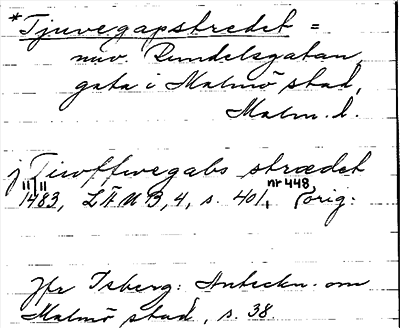 *Tjuvegapstredet =
nuv. Rundelsgatan,
gata i Malmö stad,
Malm. l.
j Tiwffwegabs strædet
11/11 1483, LÄUB, 4, s. 401, nr 448 (orig:
Jfr Isberg: Anteckn. om
Malmö stad, s. 38